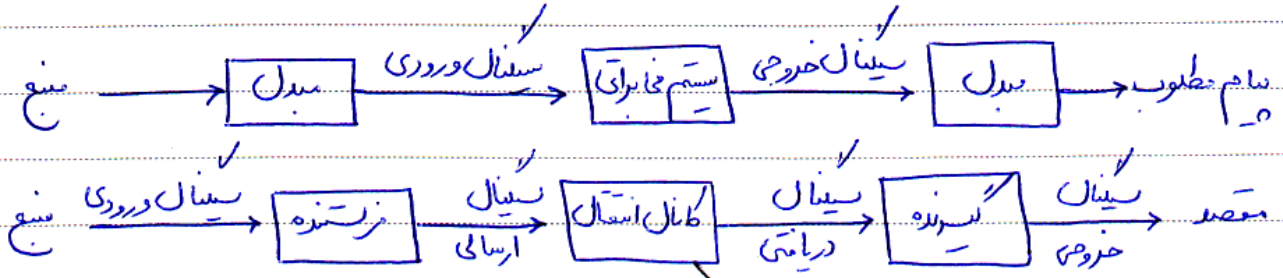 منبع مبدل سیگنال ورودی سیستم مخابراتی سیگنال خروجی مبدل پیام مطلوب
منبع سیگنال ورودی فرستنده سیگنال ارسالی کانال انتقال سیگنال دریافتی گیرنده سیگنال خروجی مقصد